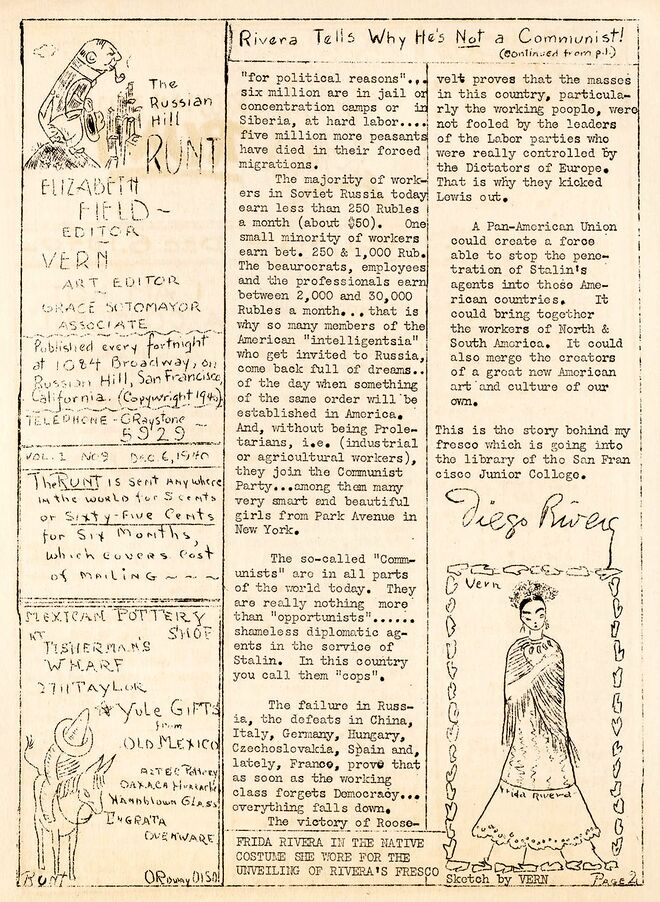 Rivera Tells Why He's Not a Communist!
(Continued from p.1.)
The
Russian
Hill
RUNT
ELIZABETH
FIELD -
EDITOR
VERN
ART EDITOR
GRACE SOTOMAYOR
ASSOCIATE
Published every fortnight
at 1084 Broadway, on
Russian Hill, San Francisco,
California. (Copywright 1940)
TELEPHONE - GRaystone
5929
VOL. 1 NO 9 DEC. 6, 1940
The RUNT is sent anywhere
in the world for 5 cents
or Sixty-Five Cents
for Six Months,
which covers cost
of mailing ~ ~ ~
MEXICAN POTTERY
SHOP
AT
FISHERMAN'S
WHARF
2711 TAYLOR
Yule GIFTS
from
OLD MEXICO
AZTEC Pottery
OAXACA Huarachi
Handblown Glass
INGRATA
OVENWARE
RUNT
ORdway 0150
"for political reasons"...
six million are in jail or
concentration camps or in
Siberia, at hard labor....
five million more peasants
have died in their forced
migrations.
The majority of work-
ers in Soviet Russia today
earn less than 250 Rubles
a month (about $50). One
small minority of workers
earn bet. 250 & 1,000 Rub.
The beaurocrats, employees
and the professionals earn
between 2,000 and 30,000
Rubles a month... that is
why so many members of the
American "intelligentsia"
who get invited to Russia,
come back full of dreams..
of the day when something
of the same order will be
established in America.
And, without being Prole-
tarians, i.e. (industrial
or agricultural workers),
they join the Communist
Party...among them many
very smart and beautiful
girls from Park Avenue in
New York.
The so-called "Comm-
unists" are in all parts
of the world today. They
are really nothing more
than "opportunists"......
shameless diplomatic ag-
ents in the service of
Stalin. In this country
you call them "cops".
The failure in Russ-
ia, the defeats in China,
Italy, Germany, Hungary,
Czechoslovakia, Spain and,
lately, France, prove that
as soon as the working
class forgets Democracy...
everything falls down.
The victory of Roose-
velt proves that the masses
in this country, particula-
rly the working people, were
not fooled by the leaders
of the Labor parties who
were really controlled by
the Dictators of Europe.
That is why they kicked
Lewis out.
A Pan-American Union
could create a force
able to stop the pene-
tration of Stalin's
agents into these Ame-
rican countries. It
could bring together
the workers of North &
South America. It could
also merge the creators
of a great new American
art and culture of our
own.
This is the story behind my
fresco which is going into
the library of the San Fran
cisco Junior College.
Diego Rivera
Vern
Frida Rivera
FRIDA RIVERA IN THE NATIVE
COSTUME SHE WORE FOR THE
UNVEILING OF RIVERA'S FRESCO
Sketch by VERN
PAGE 2